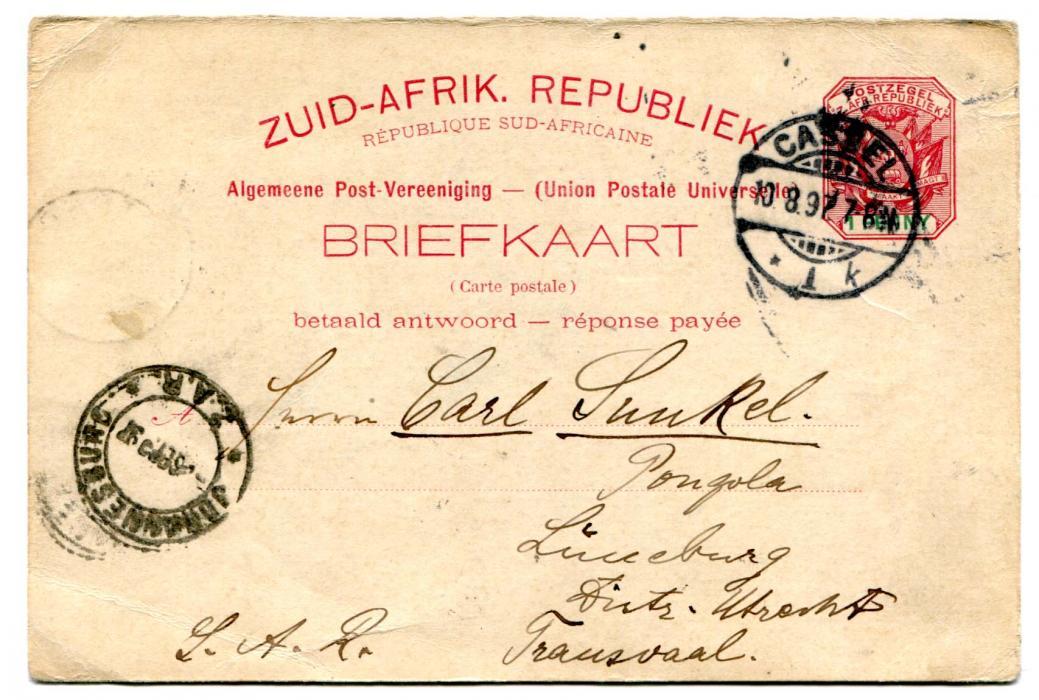 ZUID-AFRIK. REPUBLIEK
RÉPUBLIQUE SUD-AFRICAINE
POSTZEGEL
Z. AFR. REPUBLIEK
1 PENNY
Algemeene Post-Vereeniging — (Union Postale Universelle)
CASSEL
10.8.97.7-8N
* 1 k
BRIEFKAART
(Carte postale)
betaald antwoord — réponse payée
JOHANNESBURG
Z.A.R.
Herrn Carl Sunkel.
Pongola
Lüneburg
Distr. Utrecht
S. A. R. Transvaal.